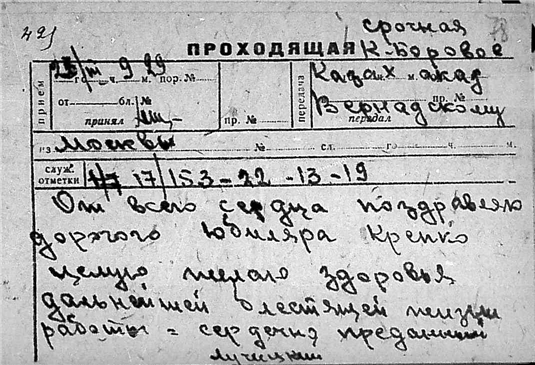 срочная 78
ПРОХОДЯЩАЯ К. Боровое
прием го ч. 9 29 м. пор. № передача Казах м. акад
от бл. № пр. № пр. № Вернадскому
принял передал
из Москвы № сл. го ч. м.
служ. отметки 17/153-22-13-19
От всего сердца поздравляю
дорогого юбиляра Крепко
целую желаю здоровья
дальнейшей блестящей жизни
работы = сердечно преданный
Лучицкий